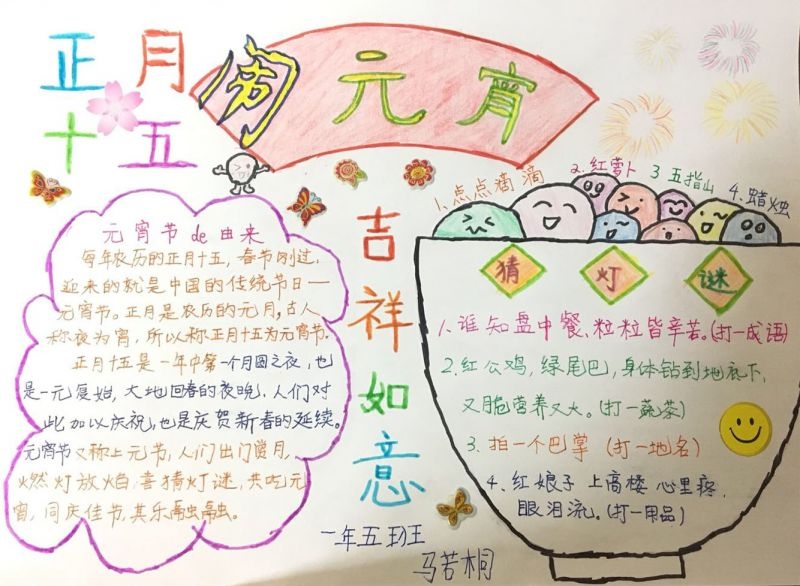 正月
十五
闹元宵
元宵节de由来
每年农历的正月十五，春节刚过，
迎来的就是中国的传统节日一
元宵节。正月是农历的元月，古人
称夜为宵，所以称正月十五为元宵节。
正月十五是一年中第一个月圆之夜，也
是一元复始，大地回春的夜晚，人们对
此加以庆祝，也是庆贺新春的延续。
元宵节又称上元节，人们出门赏月，
燃灯放焰，喜猜灯谜，共吃元
宵，同庆佳节，其乐融融。
吉祥如意
一年五班
马若桐
1.点点滴滴
2.红萝卜
3五指山
4.蜡烛
猜灯谜
1.谁知盘中餐、粒粒皆辛苦。(打一成语)
2.红公鸡，绿尾巴，身体钻到地底下，
又脆营养又大。(打一蔬菜)
3.拍一个巴掌 (打一地名)
4.红娘子 上高楼 心里疼，
眼泪流。(打一用品)